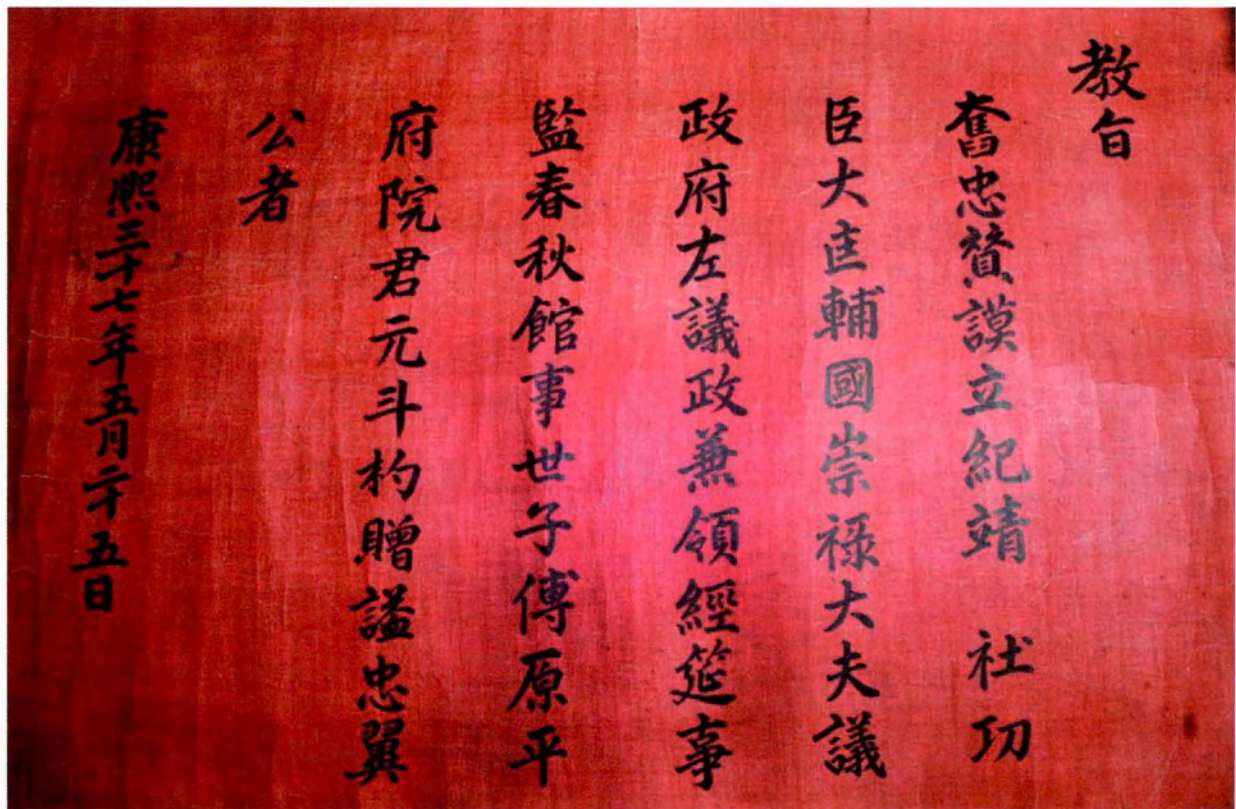 教旨
奮忠贊謨立紀靖 社功
臣大匡輔國崇祿大夫議
政府左議政兼領經筵事
監春秋館事世子傅原平
府院君元斗杓贈謚忠翼
公者
康熙三十七年五月二十五日